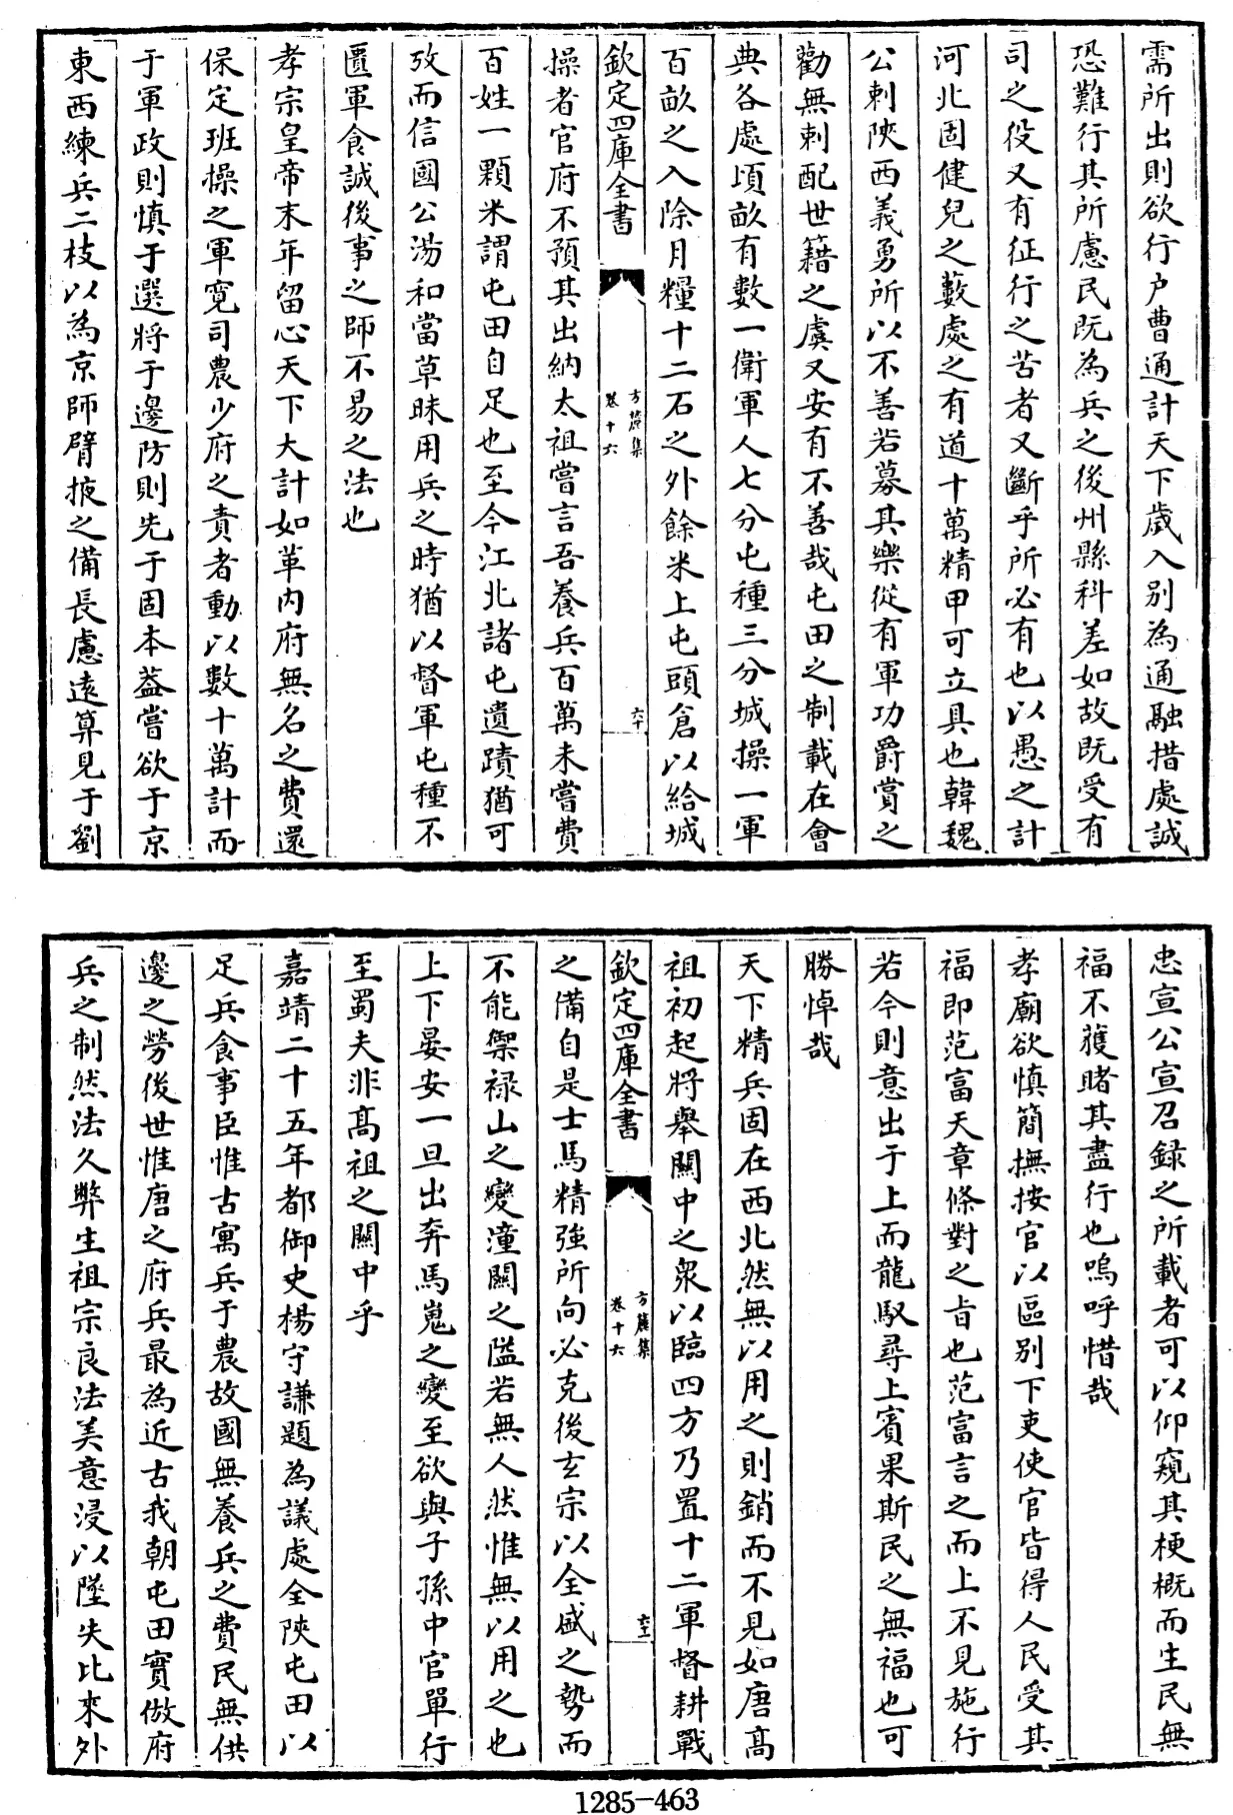 需所出則欲行户曹通計天下歲入别為通融措處誠
恐難行其所慮民既為兵之後州縣科差如故既受有
司之役又有征行之苦者又斷乎所必有也以愚之計
河北固健兒之藪處之有道十萬精甲可立具也韓魏
公刺陝西義勇所以不善若募其樂從有軍功爵賞之
勸無刺配世籍之虞又安有不善哉屯田之制載在會
典各處頃畝有數一衛軍人七分屯種三分城操一軍
百畝之入除月糧十二石之外餘米上屯頭倉以給城
欽定四庫全書
方麓集
卷十六
六十
操者官府不預其出納太祖嘗言吾養兵百萬未嘗費
百姓一顆米謂屯田自足也至今江北諸屯遺蹟猶可
攷而信國公湯和當草昧用兵之時猶以督軍屯種不
匱軍食誠後事之師不易之法也
孝宗皇帝末年留心天下大計如革内府無名之費還
保定班操之軍寛司農少府之責者動以數十萬計而
于軍政則慎于選將于邊防則先于固本葢嘗欲于京
東西練兵二枝以為京師臂掖之備長慮遠算見于劉
忠宣公宣召録之所載者可以仰窺其梗概而生民無
福不獲睹其盡行也嗚呼惜哉
孝廟欲慎簡撫按官以區别下吏使官皆得人民受其
福即范富天章條對之旨也范富言之而上不見施行
若今則意出于上而龍馭尋上賓果斯民之無福也可
勝悼哉
天下精兵固在西北然無以用之則銷而不見如唐髙
祖初起將舉關中之衆以臨四方乃置十二軍督耕戰
欽定四庫全書
方麓集
卷十六
六十一
之備自是士馬精強所向必克後玄宗以全盛之勢而
不能禦禄山之變潼關之隘若無人然惟無以用之也
上下晏安一旦出奔馬嵬之變至欲與子孫中官單行
至蜀夫非髙祖之關中乎
嘉靖二十五年都御史楊守謙題為議處全陝屯田以
足兵食事臣惟古寓兵于農故國無養兵之費民無供
邊之勞後世惟唐之府兵最為近古我朝屯田實倣府
兵之制然法久弊生祖宗良法美意浸以墜失比來外
1285-463